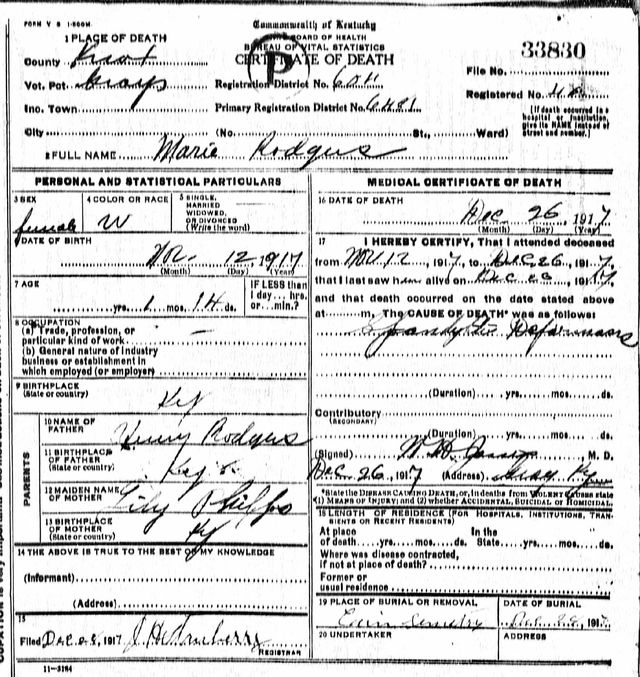 FORM V S 1-500M
Commonwealth of Kentucky
BOARD OF HEALTH
BUREAU OF VITAL STATISTICS
CERTIFICATE OF DEATH
P
33830
1 PLACE OF DEATH
County Knox
Vot. Pct. Grays
Inc. Town
City (No. St., Ward)
Registration District No. 6011
Primary Registration District No. 6481
File No.
Registered No.
[If death occurred in a hospital or institution, give its NAME instead of street and number.]
2 FULL NAME Marie Rodgers
PERSONAL AND STATISTICAL PARTICULARS
3 SEX female
4 COLOR OR RACE W
5 SINGLE, MARRIED WIDOWED, OR DIVORCED (Write the word)
DATE OF BIRTH
Nov. 12, 1917
(Month) (Day) (Year)
7 AGE
yrs. 1 mos. 14 ds.
IF LESS than 1 day... hrs. or... min.?
8 OCCUPATION
(a) Trade, profession, or particular kind of work
(b) General nature of industry business or establishment in which employed (or employer)
9 BIRTHPLACE
(State or country) Ky
PARENTS
10 NAME OF FATHER Henry Rodgers
11 BIRTHPLACE OF FATHER
(State or country)
12 MAIDEN NAME OF MOTHER Lily Phipps
13 BIRTHPLACE OF MOTHER
(State or country) Ky
14 THE ABOVE IS TRUE TO THE BEST OF MY KNOWLEDGE
(Informant)
(Address)
15
Filed Dec 28, 1917 J. H.
REGISTRAR
11-3184
MEDICAL CERTIFICATE OF DEATH
16 DATE OF DEATH
Dec. 26, 1917
(Month) (Day) (Year)
17 I HEREBY CERTIFY, That I attended deceased
from Nov. 12, 1917, to Dec. 26, 1917,
that I last saw him alive on Dec 26, 1917,
and that death occurred on the date stated above
at m. The CAUSE OF DEATH* was as follows:
(Duration) yrs. mos. ds.
Contributory
(SECONDARY)
(Duration) yrs. mos. ds.
(Signed) M.D.
Dec. 26, 1917 (Address) Gray Ky
*State the DISEASE CAUSING DEATH, or, in deaths from VIOLENT CAUSES state (1) MEANS OF INJURY; and (2) whether ACCIDENTAL, SUICIDAL or HOMICIDAL.
18 LENGTH OF RESIDENCE (FOR HOSPITALS, INSTITUTIONS, TRANSIENTS OR RECENT RESIDENTS)
At place of death yrs. mos. ds. In the State yrs. mos. ds.
Where was disease contracted, if not at place of death?
Former or usual residence
19 PLACE OF BURIAL OR REMOVAL
DATE OF BURIAL
1917
20 UNDERTAKER
ADDRESS